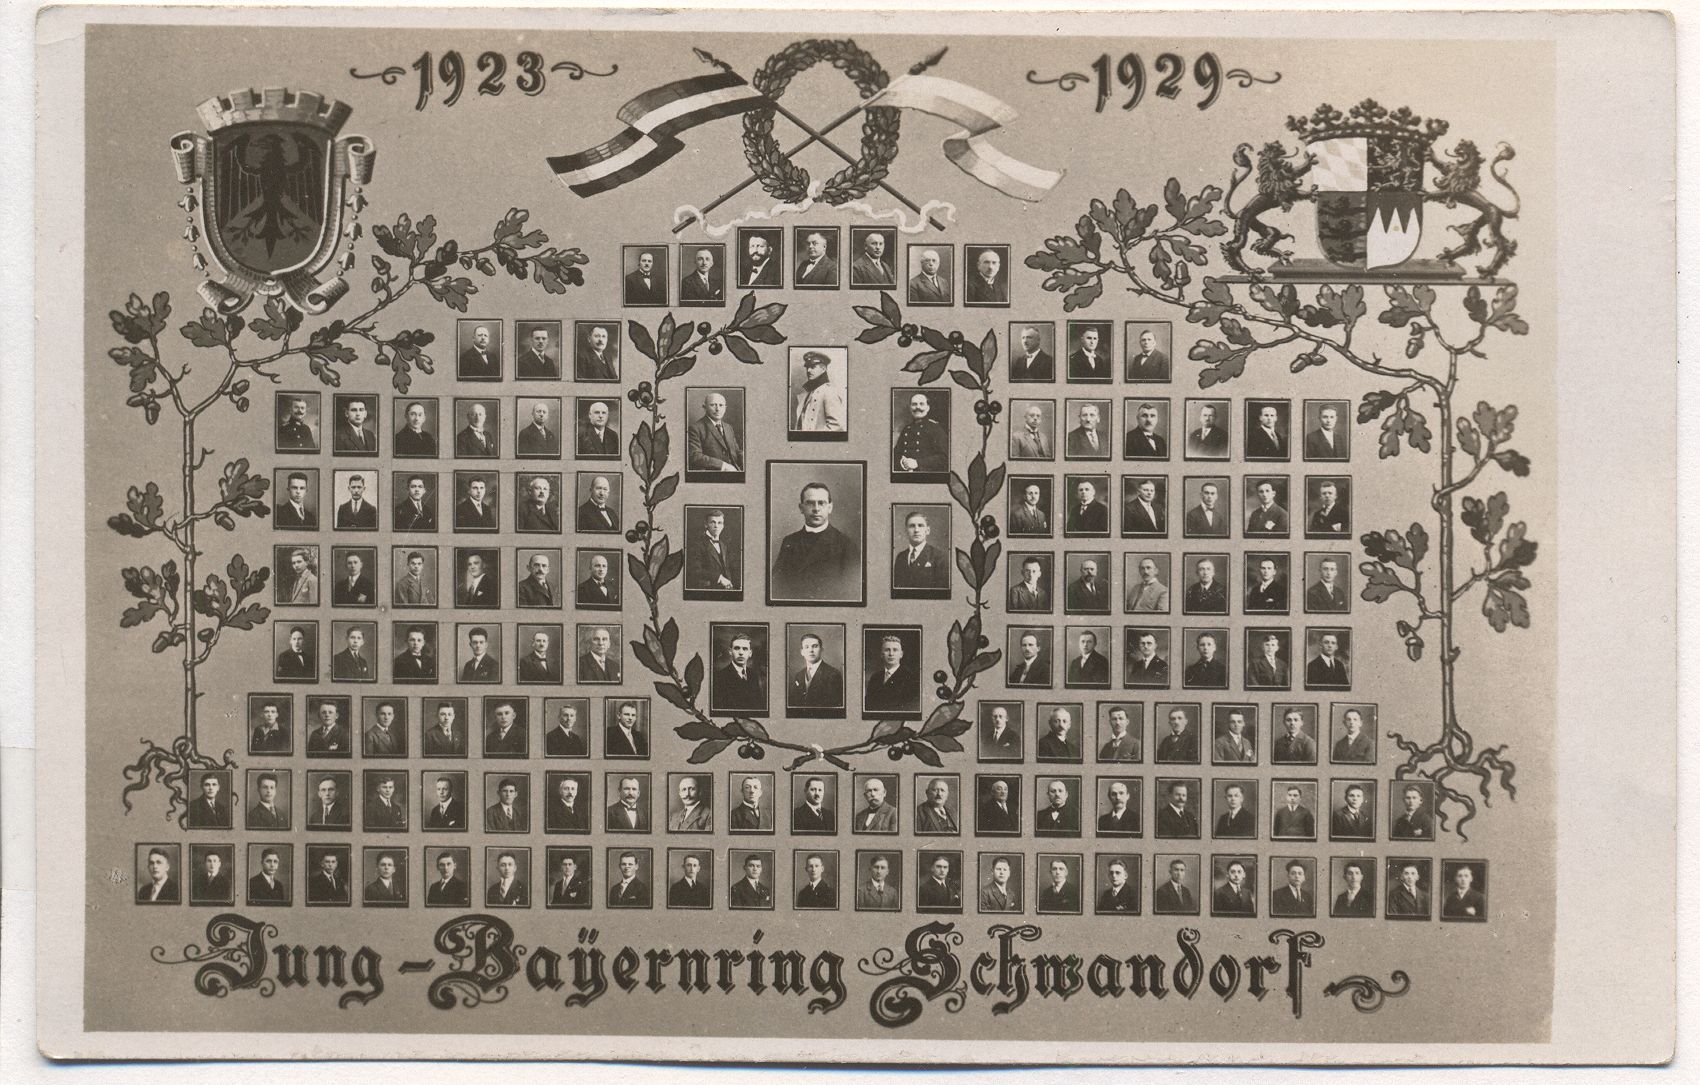 1923 1929
Jung-Baÿernring Schwandorf